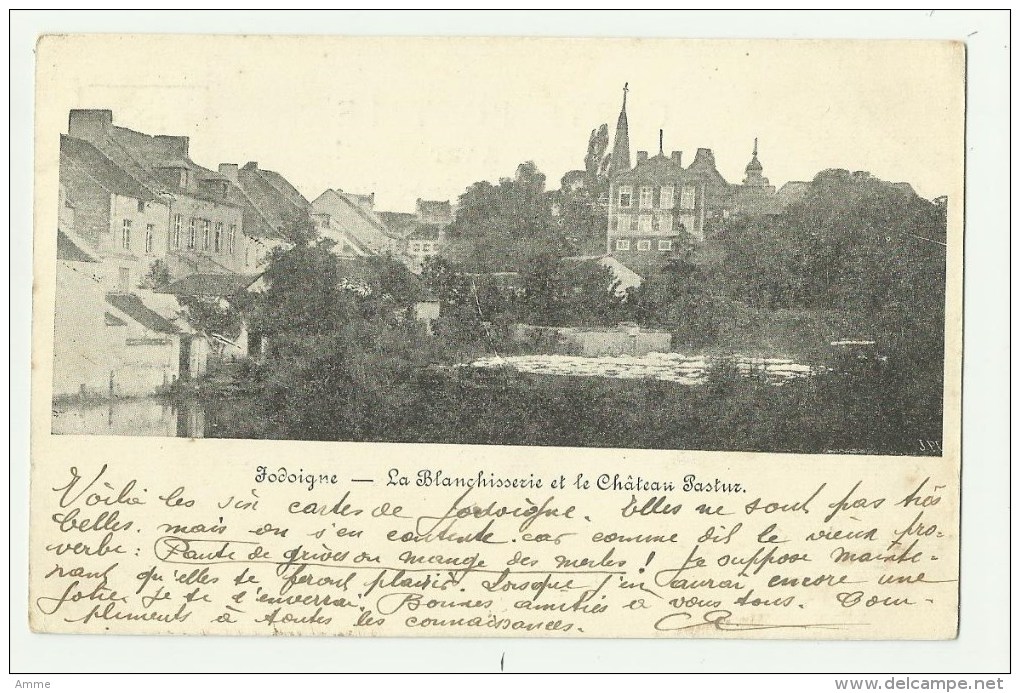 J.PH
Jodoigne — La Blanchisserie et le Château Pastur.
Voilà les six cartes de Jodoigne. Elles ne sont pas très
belles. mais on s'en contente. car comme dit le vieux pro-
verbe: Faute de grives on mange des merles! Je suppose mainte-
nant qu'elles te feront plaisir. Lorsque j'en aurai encore une
jolie, je te l'enverrai. Bonnes amitiés à vous tous. Com-
pliments à toutes les connaissances.
Amme
www.delcampe.net